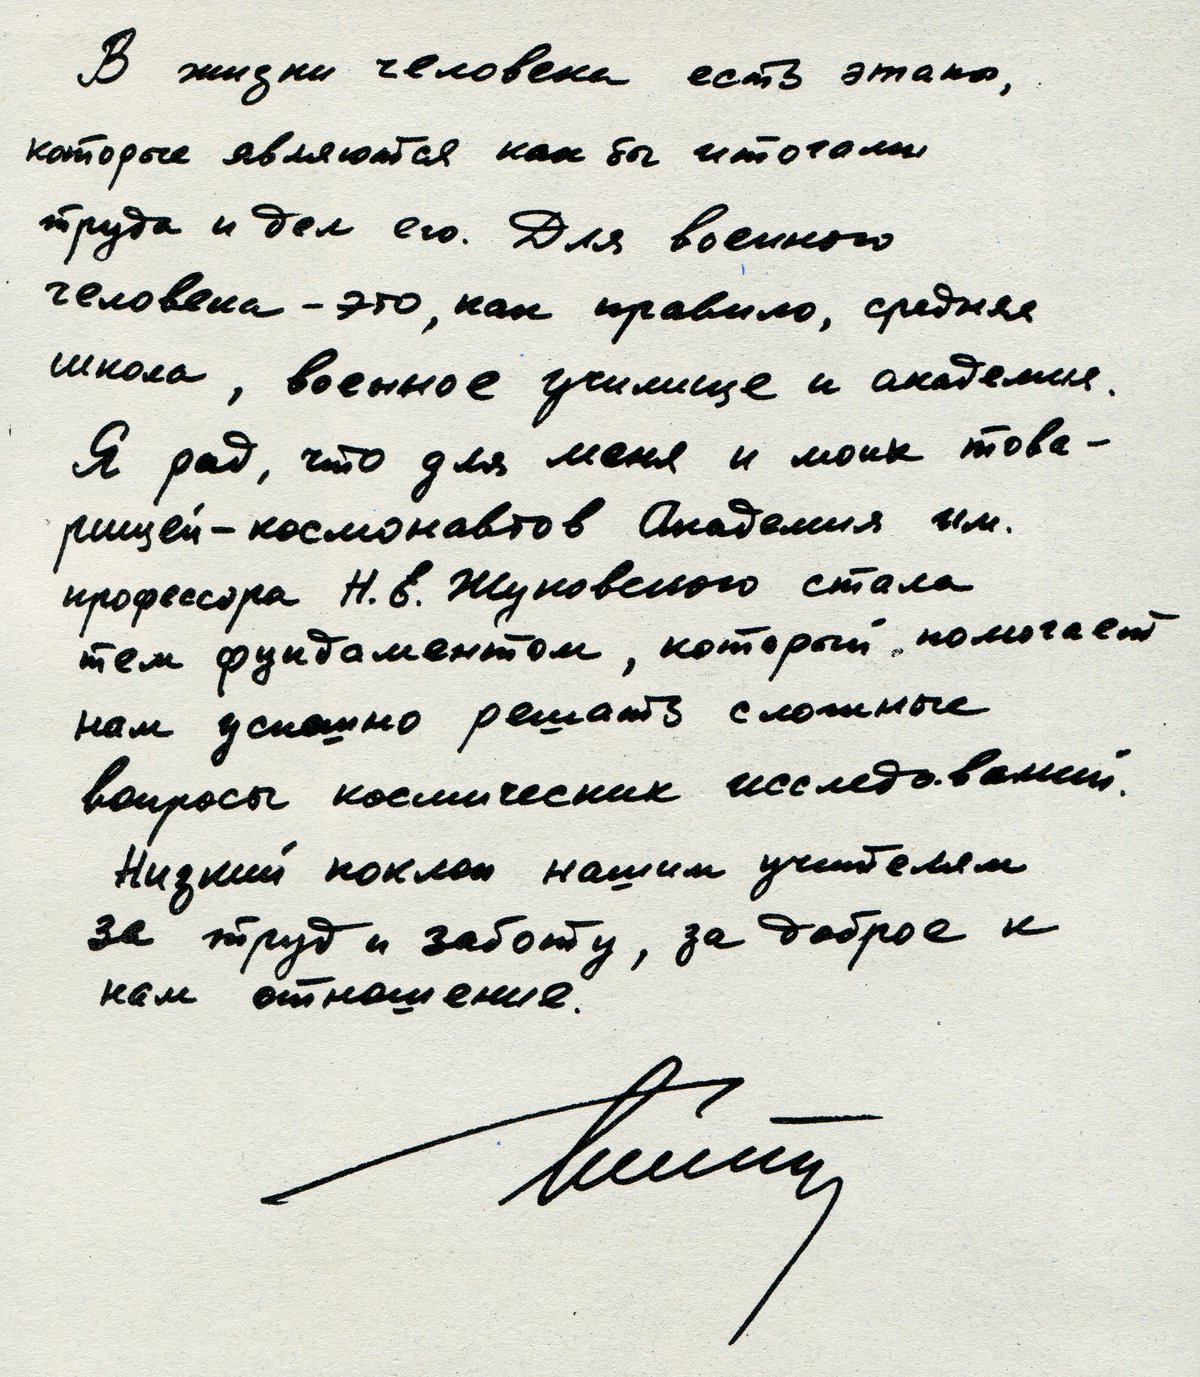 В жизни человека есть этапы,
которые являются как бы итогами
труда и дел его. Для военного
человека – это, как правило, средняя
школа, военное училище и академия.
Я рад, что для меня и моих това-
рищей-космонавтов Академия им.
профессора Н.Е. Жуковского стала
тем фундаментом, который помогает
нам успешно решать сложные
вопросы космических исследований.
Низкий поклон нашим учителям
за труд и заботу, за доброе к
нам отношение.